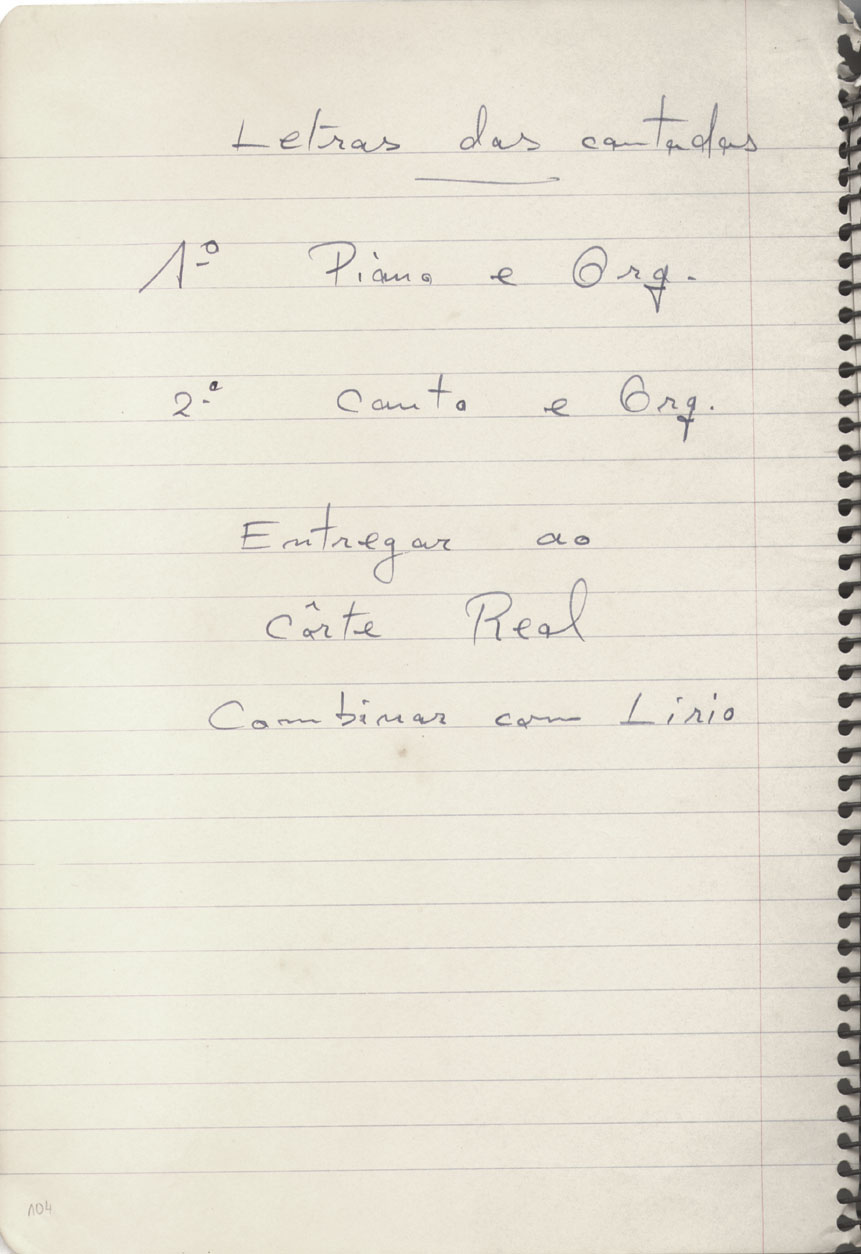 Letras das cantadas
1º Piano e Org.
2º Canto e Org.
Entregar ao
Côrte Real
Combinar com Lirio
104